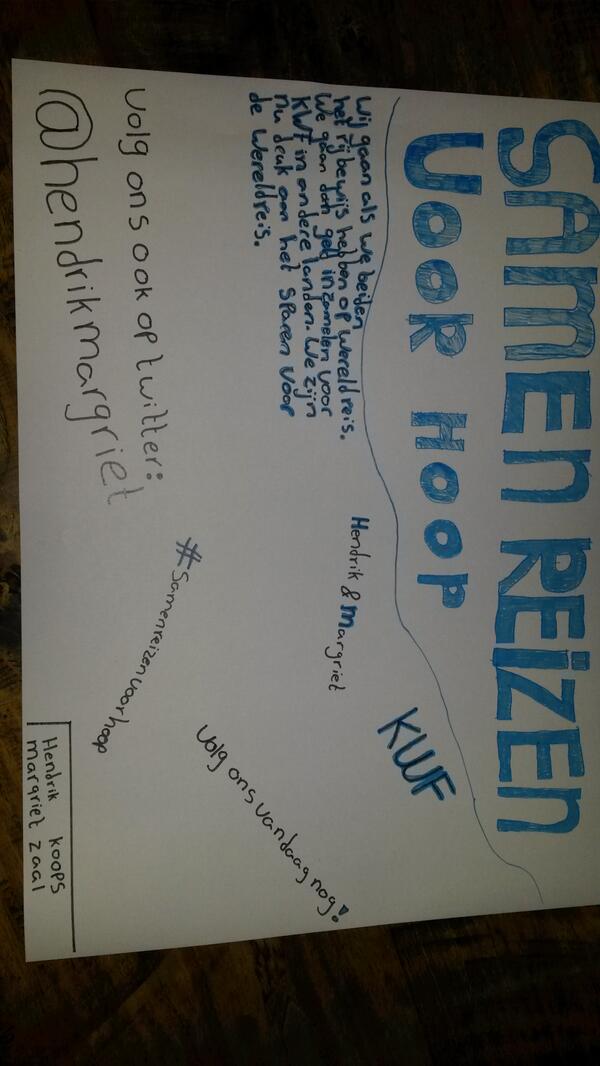 SAMEN REIZEN
VOOR HOOP
KWF
Wij gaan als we beiden
het rijbewijs hebben op wereldreis.
We gaan dan geld inzamelen voor
KWF in andere landen. We zijn
nu druk aan het sparen voor
de wereldreis.
Hendrik & Margriet
volg ons vandaag nog!
#samenreizenvoorhoop
volg ons ook op twitter:
@hendrikmargriet
Hendrik Koops
margriet zaal